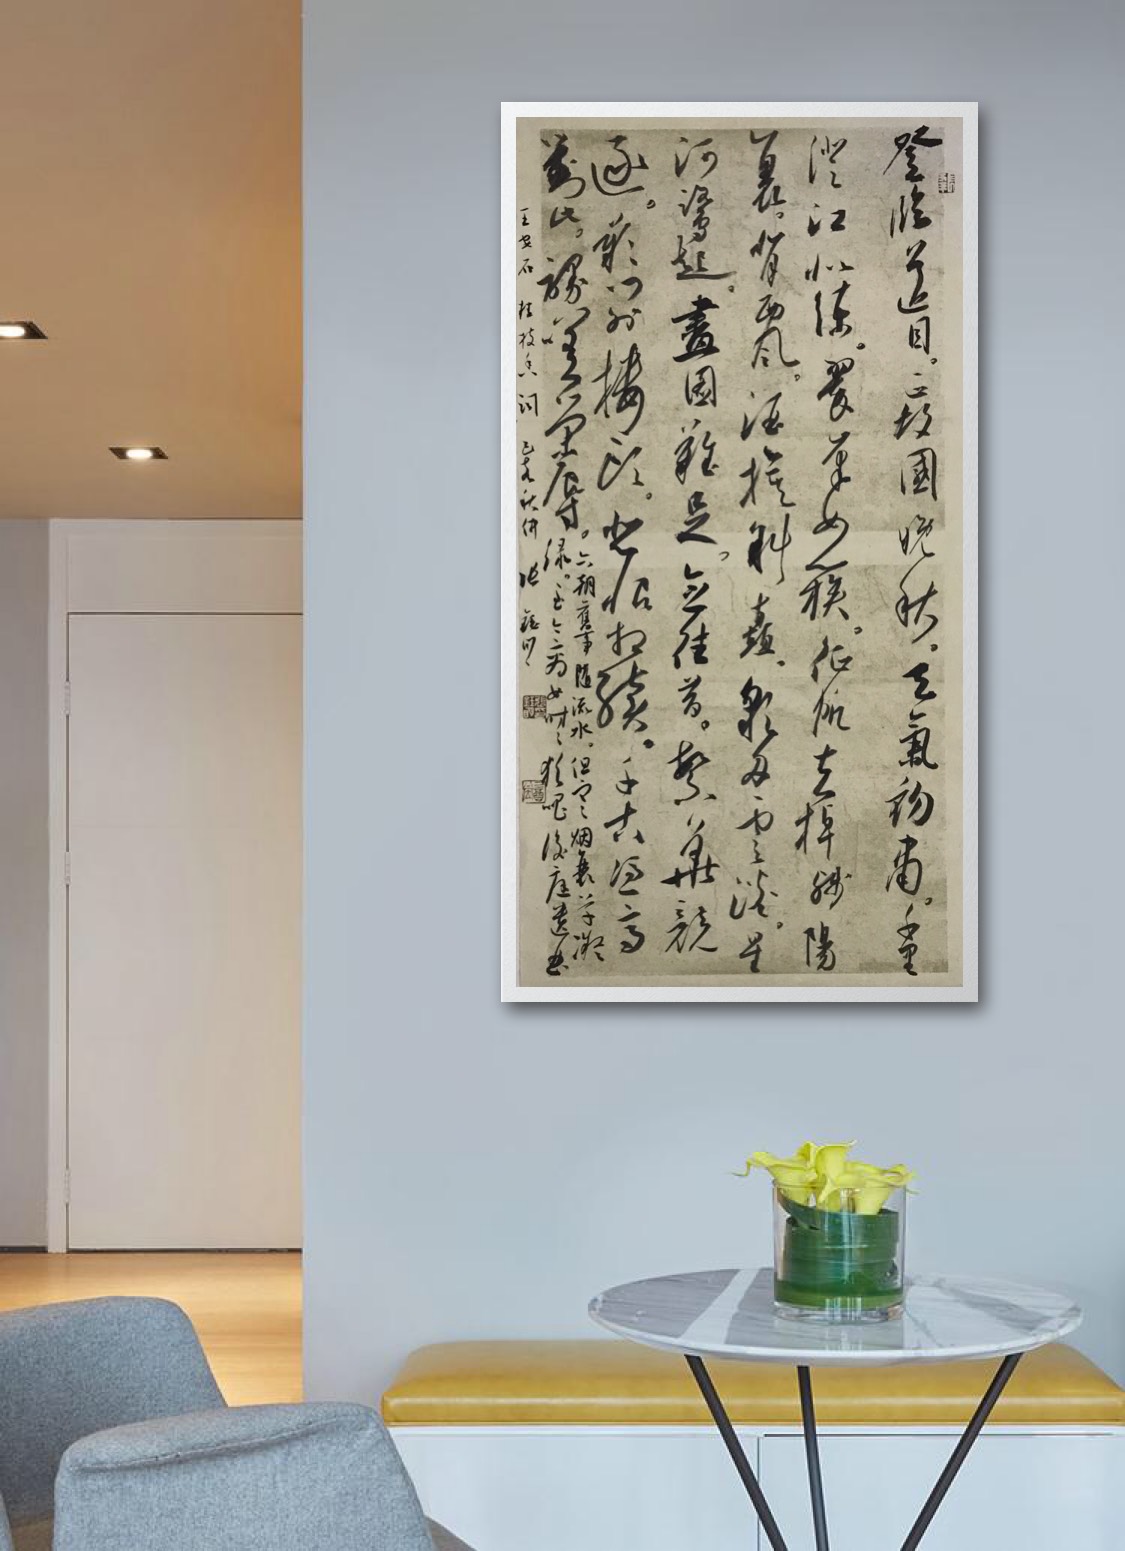 登臨送目。正故國晚秋。天氣初肅。千里
澄江似練。翠峯如簇。征帆去棹殘陽
裏。背西風。酒旗斜矗。彩舟雲淡。星
河鷺起。畫圖難足。念往昔。繁華競
逐。歎門外樓頭。悲恨相續。千古憑高
對此。謾嗟榮辱。六朝舊事隨流水。但寒烟衰草凝
綠。至今商女時時猶唱後庭遺曲
王安石 桂枝香 詞 己亥秋仲 张